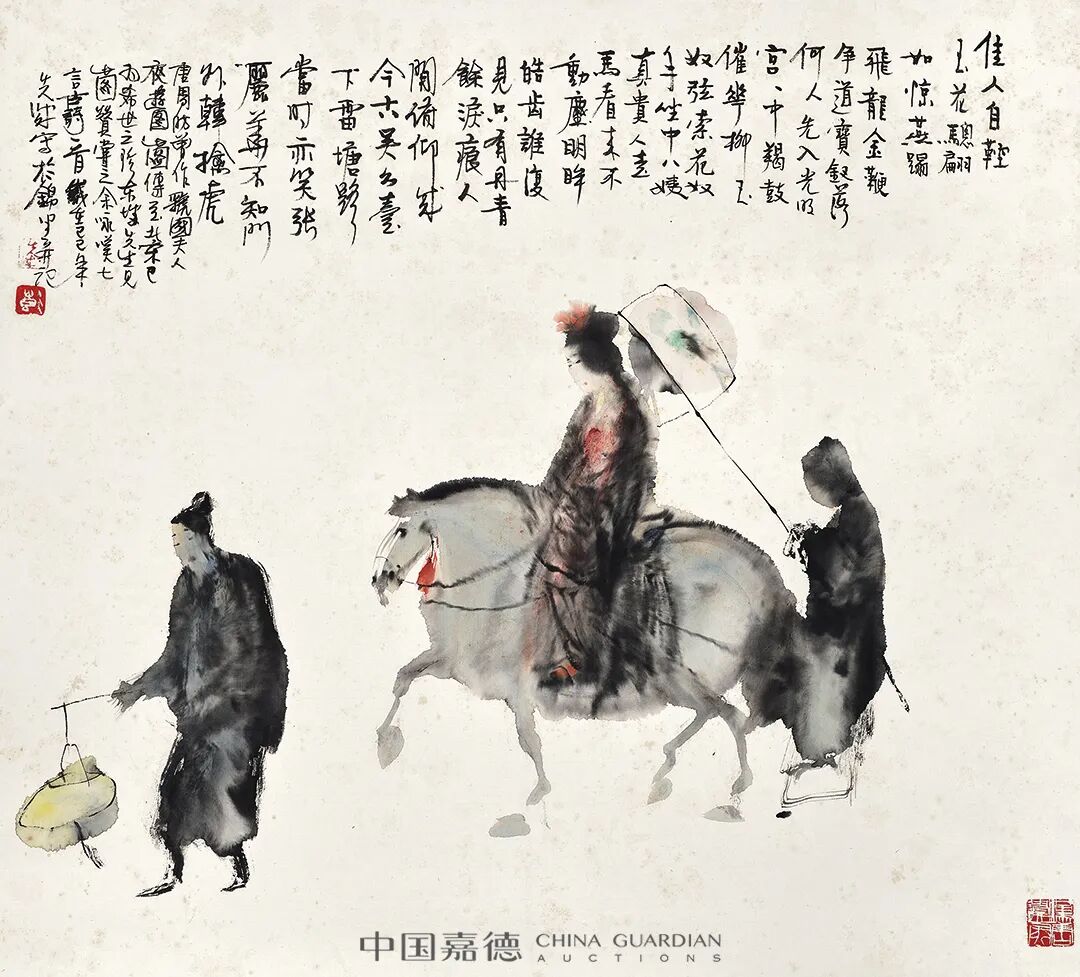 佳人自鞚
玉花驄翩
如惊燕蹋
飛龍金鞭
争道寶釵落
何人先入光明
宫、中羯鼓
催華柳玉
奴弦索花奴
手坐中八姨
真貴人走
馬看来不
動塵明眸
皓齒誰復
見只有丹青
餘淚痕人
間俯仰成
今古吴公臺
下雷塘路
當時亦笑張
麗華不知門
外韓擒虎
唐周昉曾作虢國夫人
夜遊圖圖傳至北宋已
为希世之珍东坡先生見
圖贊賞之余咏嘆七
言詩首己巳年
先誠写於錦中并记
中国嘉德 CHINA GUARDIAN
AUCTIONS